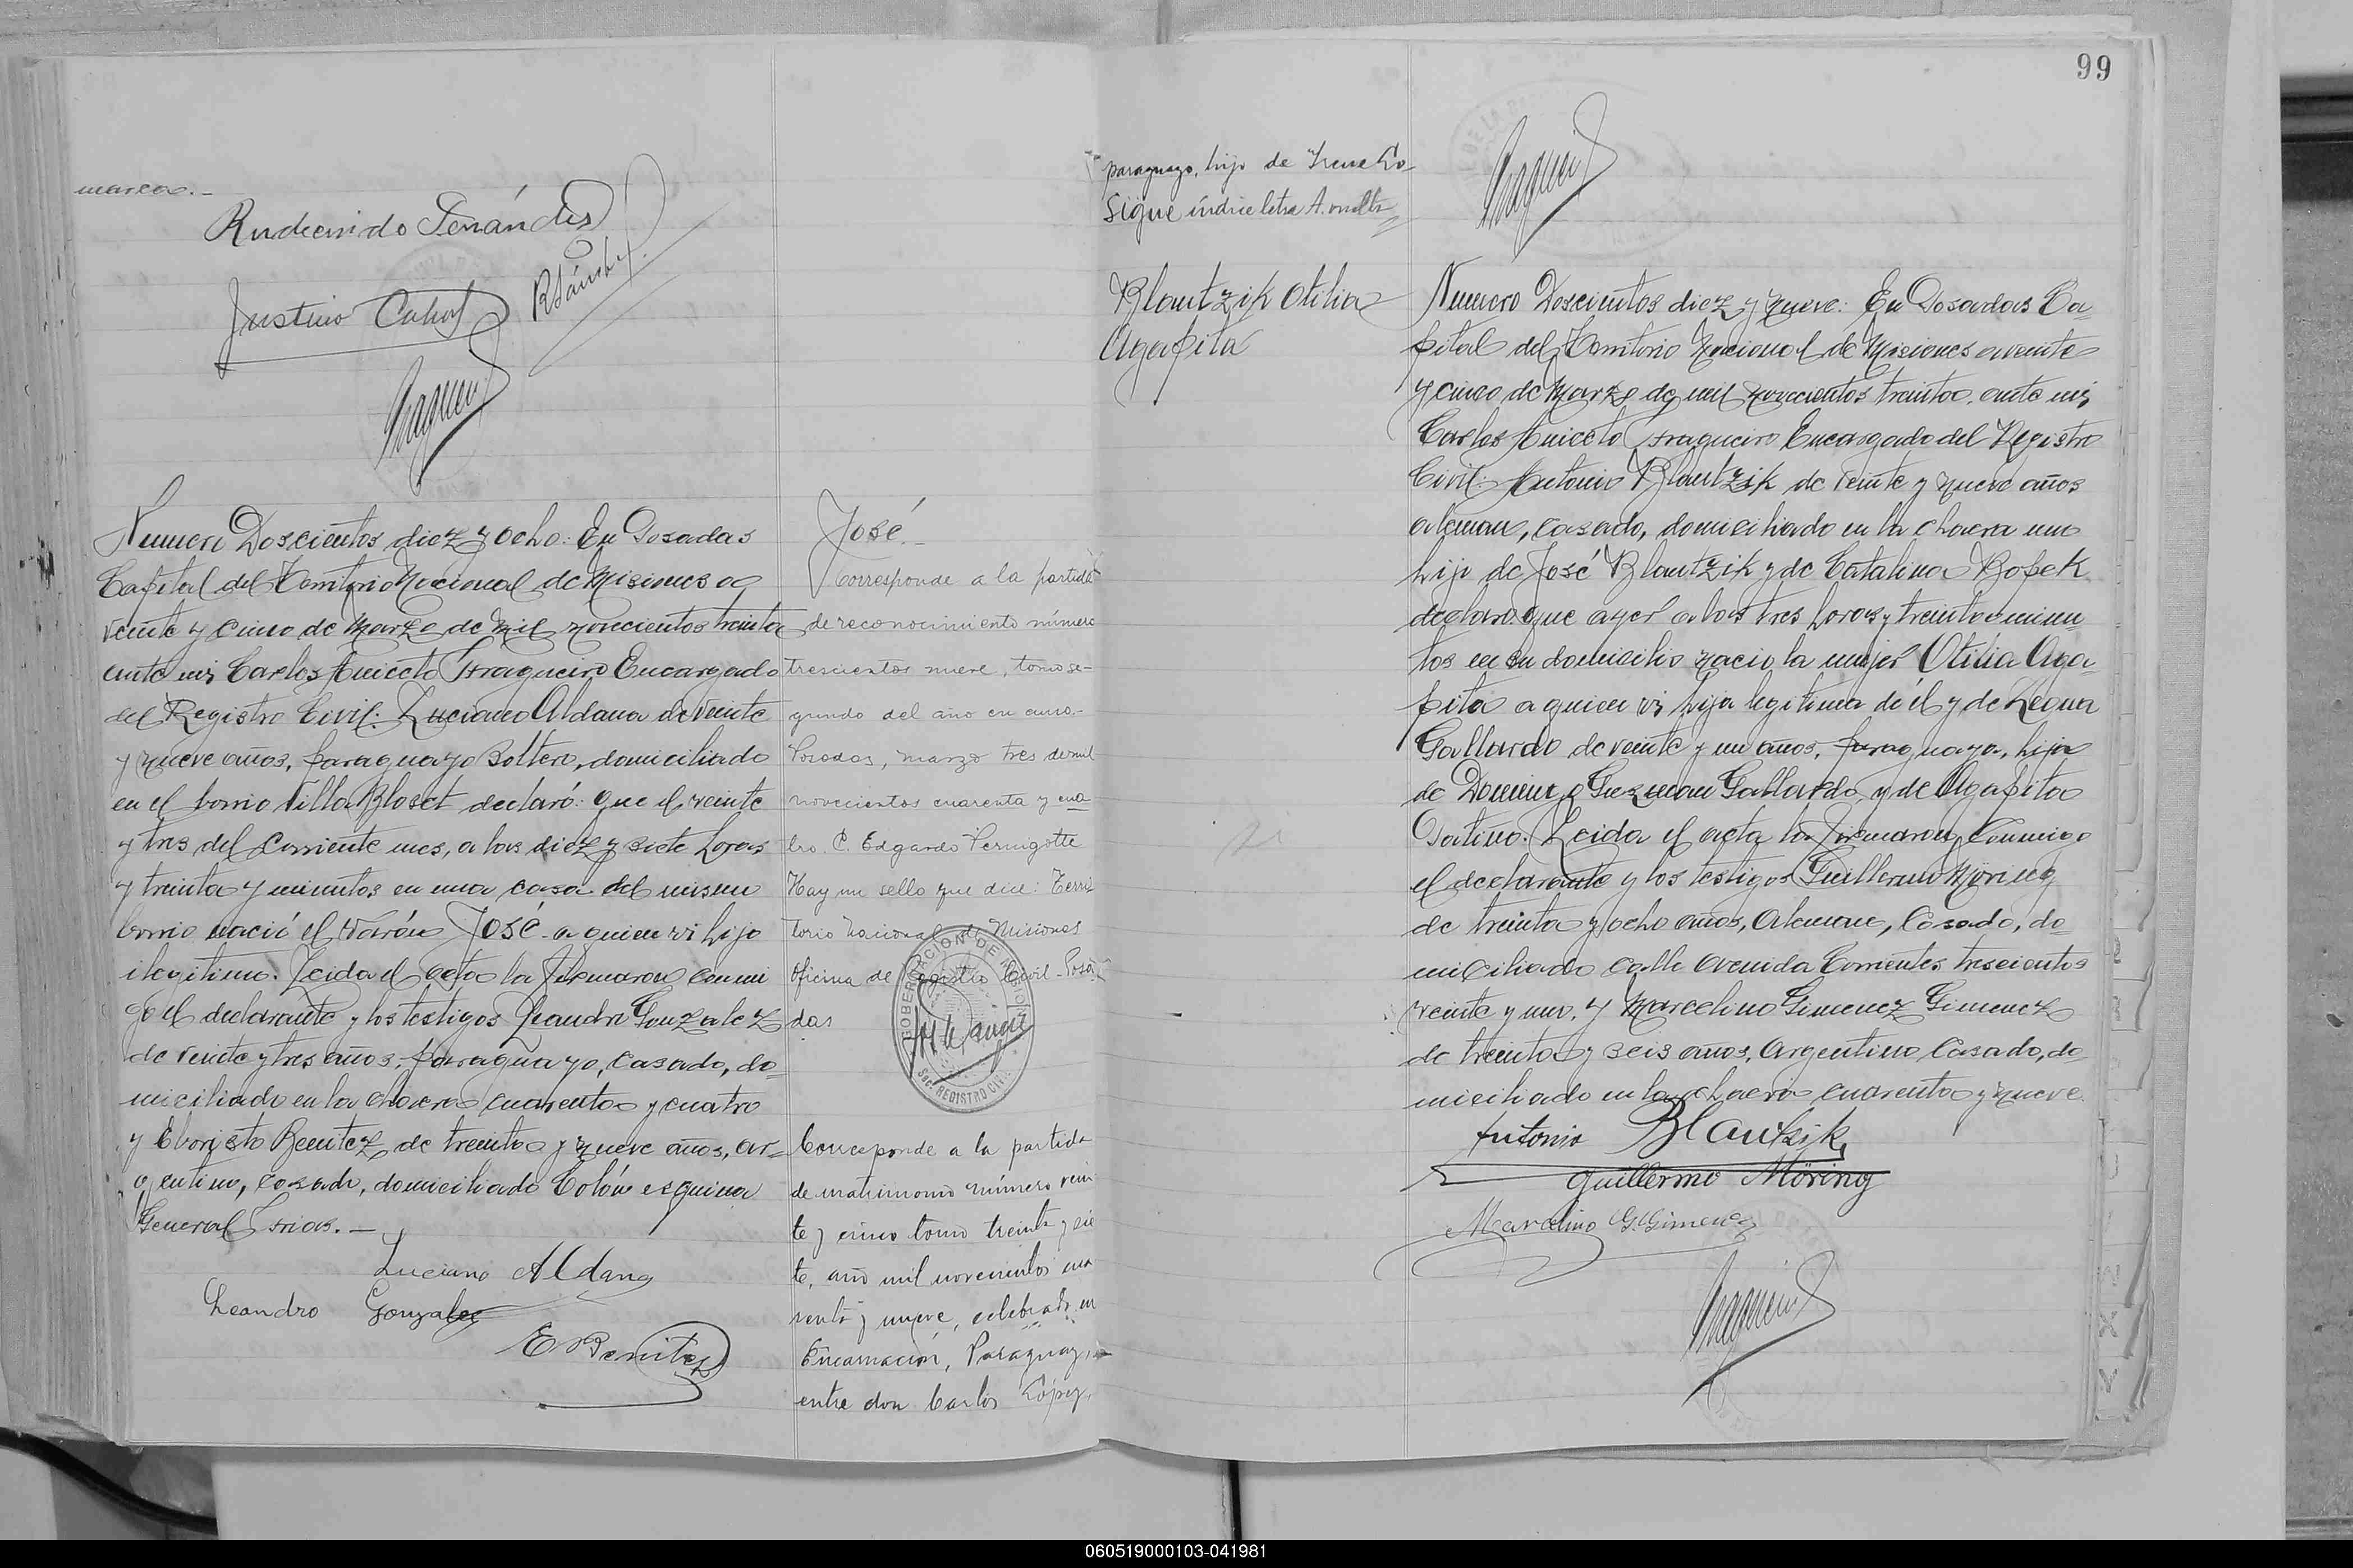 marca.-
Rudecindo
Justino
Numero Doscientos diez y ocho: En Posadas
Capital del Territorio Nacional de Misiones a
veinte y cinco de Marzo de mil novecientos treinta
ante mi, Carlos Aniceto Fragueiro Encargado
del Registro Civil: Luciano Aldana de veinte
y nueve años, paraguayo soltero, domiciliado
en el barrio Villa Bloset declaró: que el veinte
y tres del corriente mes, a las diez y siete horas
y treinta y minutos en una casa del mismo
barrio nació el varón José a quien vi hijo
ilegitimo. Leida el acta la firmaron conmi
go el declarante y los testigos Leandro Gonzalez
de veinte y tres años, paraguayo, casado, do-
miciliado en la chacra cuarenta y cuatro
y Evaristo Benitez de treinta y nueve años, ar-
gentino, casado, domiciliado Colón esquina
General Frias.-
Luciano Aldana
Leandro Gonzalez
E Benitez
José.-
Corresponde a la partida
de reconocimiento número
trescientos nueve, tomo se-
gundo del año en curso.-
Posadas, marzo tres de mil
novecientos cuarenta y cua
tro. C. Edgardo Pernigotte
Hay un sello que dice: Terri
torio Nacional de Misiones
Oficina de Registro Civil-Posa
das
GOBERNACION DE MISIONES
SEC. REGISTRO CIVIL
Corresponde a la partida
de matrimonio número vein
te y cinco tomo treinta y sie
te, año mil novecientos cua
renta y nueve, celebrado en
Encarnación, Paraguay,
entre don Carlos López,
paraguayo, hijo de Irene Lo-
Sigue índice letra A. vuelta
99
Blautzik Otilia
Agapita
Numero Doscientos diez y nueve: En Posadas Ca
pital del Territorio Nacional de Misiones a veinte
y cinco de Marzo de mil novecientos treinta, ante mi,
Carlos Aniceto Fragueiro Encargado del Registro
Civil: Antonio Blautzik de veinte y nueve años
aleman, casado, domiciliado en la chacra uno
hijo de José Blautzik y de Catalina Bopek
declaro: que ayer a las tres horas y treinta minu
tos en su domicilio nacio la mujer Otilia Aga-
pita a quien vi hija legitima de él y de Leona
Gallardo de veinte y un años, paraguaya, hija
de Domingo Guzman Gallardo y de Agapita
Leida el acta la firmaron conmigo
el declarante y los testigos Guillermo Möring
de treinta y ocho años, Aleman, Casado, do
miciliado calle avenida Corrientes trescientos
veinte y uno. y Marcelino Gimenez Gimenez
de treinta y seis años, Argentino Casado, do
miciliado en la chacra cuarenta y nueve.
Antonio Blautzik
Guillermo Möring
Marcelino G. Gimenez
060519000103-041981